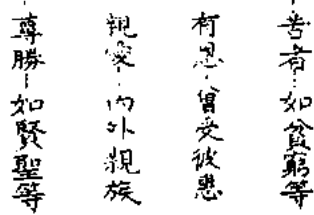 苦者-如貧窮等
恩-曾受彼
親愛-內外親族
尊勝-如賢聖等